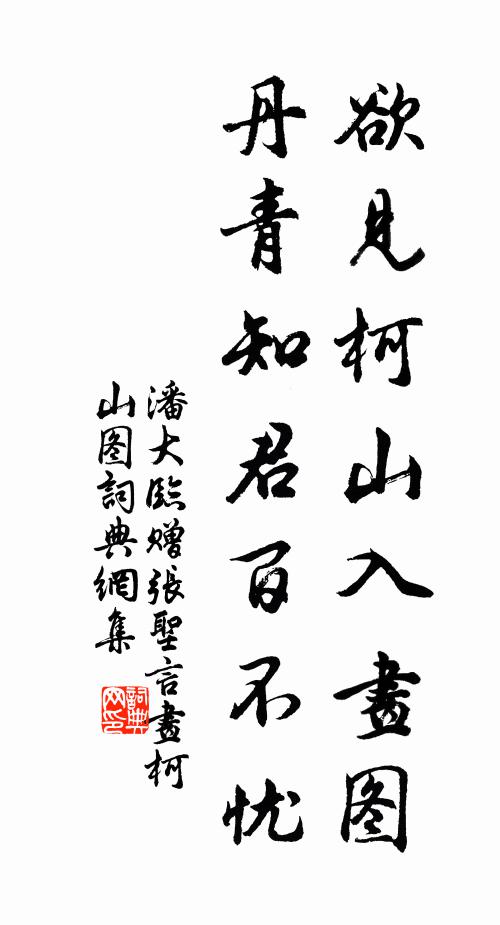 欲见柯山入畫图
丹青知君百不忧
潘大臨赠張聖言畫柯
山图詞典網集
詞典网印